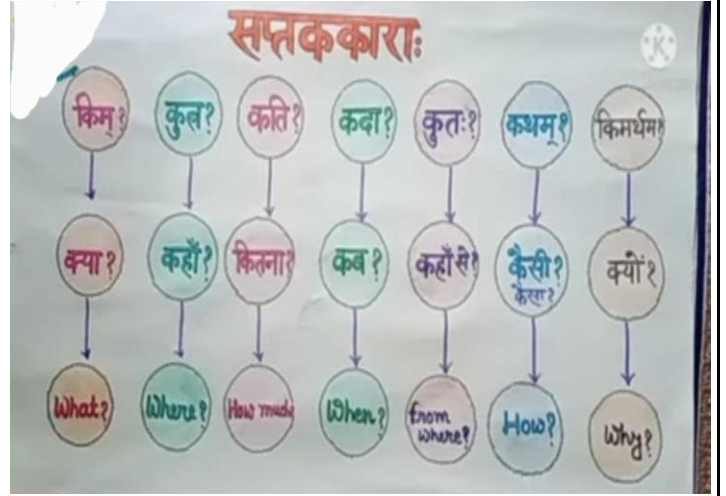 सप्तककाराः
किम्? कुत्र? कति? कदा? कुतः? कथम्? किमर्थम्?
क्या? कहाँ? कितना? कब? कहाँ से? कैसी? क्यों?
कैसा?
What? Where? How much When? from How? Why?
where?
K